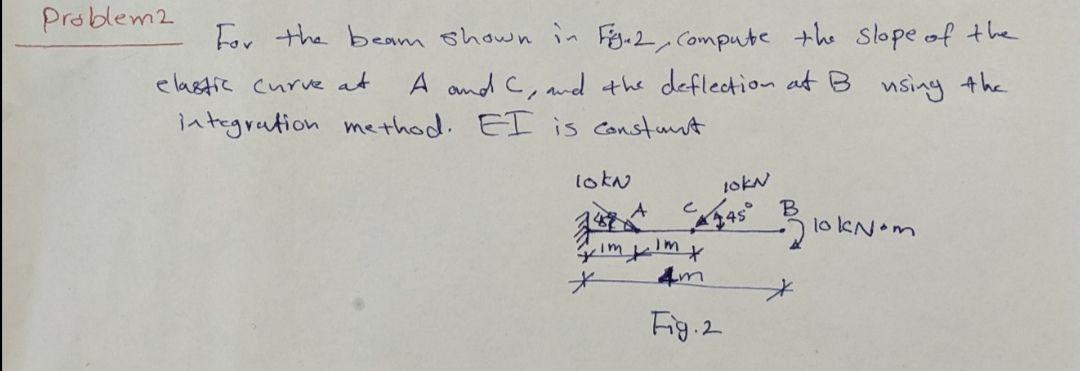 Problem2
For the beam shown in Fig.2, compute the slope of the
elastic curve at A and C, and the deflection at B using the
integration method. EI is constant
10kN 10kN
45° A C 45° B 10 kN.m
1m 1m
4m
Fig.2